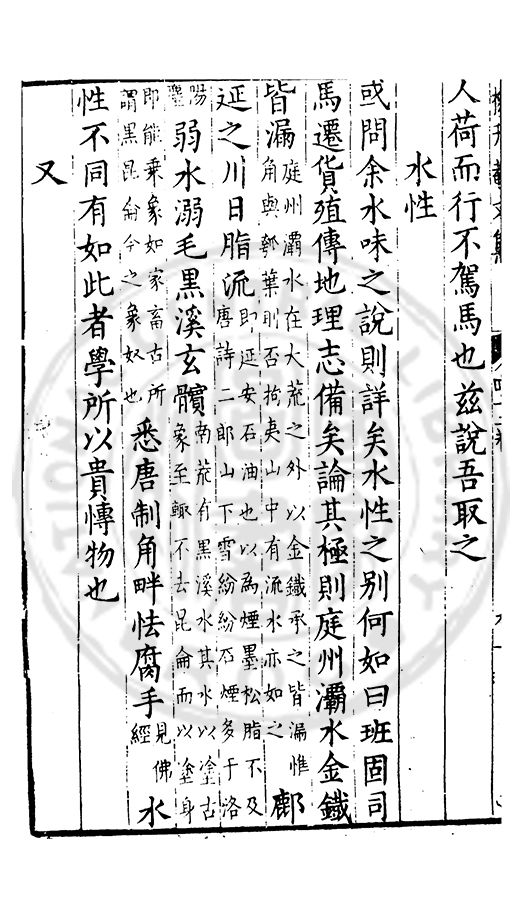 人荷而行不駕馬也茲說吾取之
水性
或問余水味之說則詳矣水性之別何如曰班固司
馬遷貨殖傳地理志備矣論其極則庭州灞水金鐡
皆漏庭州灞水在大荒之外以金鐡承之皆漏惟角與瓠葉則否拘夷山中有流水亦如之鄜
延之川日脂流即延安石油也以為煙墨松脂不及唐詩二郎山下雪紛紛石煙多于洛
陽塵弱水溺毛黑溪玄髕南荒有黑溪水其水以塗古象至輙不去昆侖而以塗身
即能乗象如家畜古所謂黑昆侖今之象奴也悉唐制角畔怯腐手見佛經水
性不同有如此者學所以貴愽物也
又